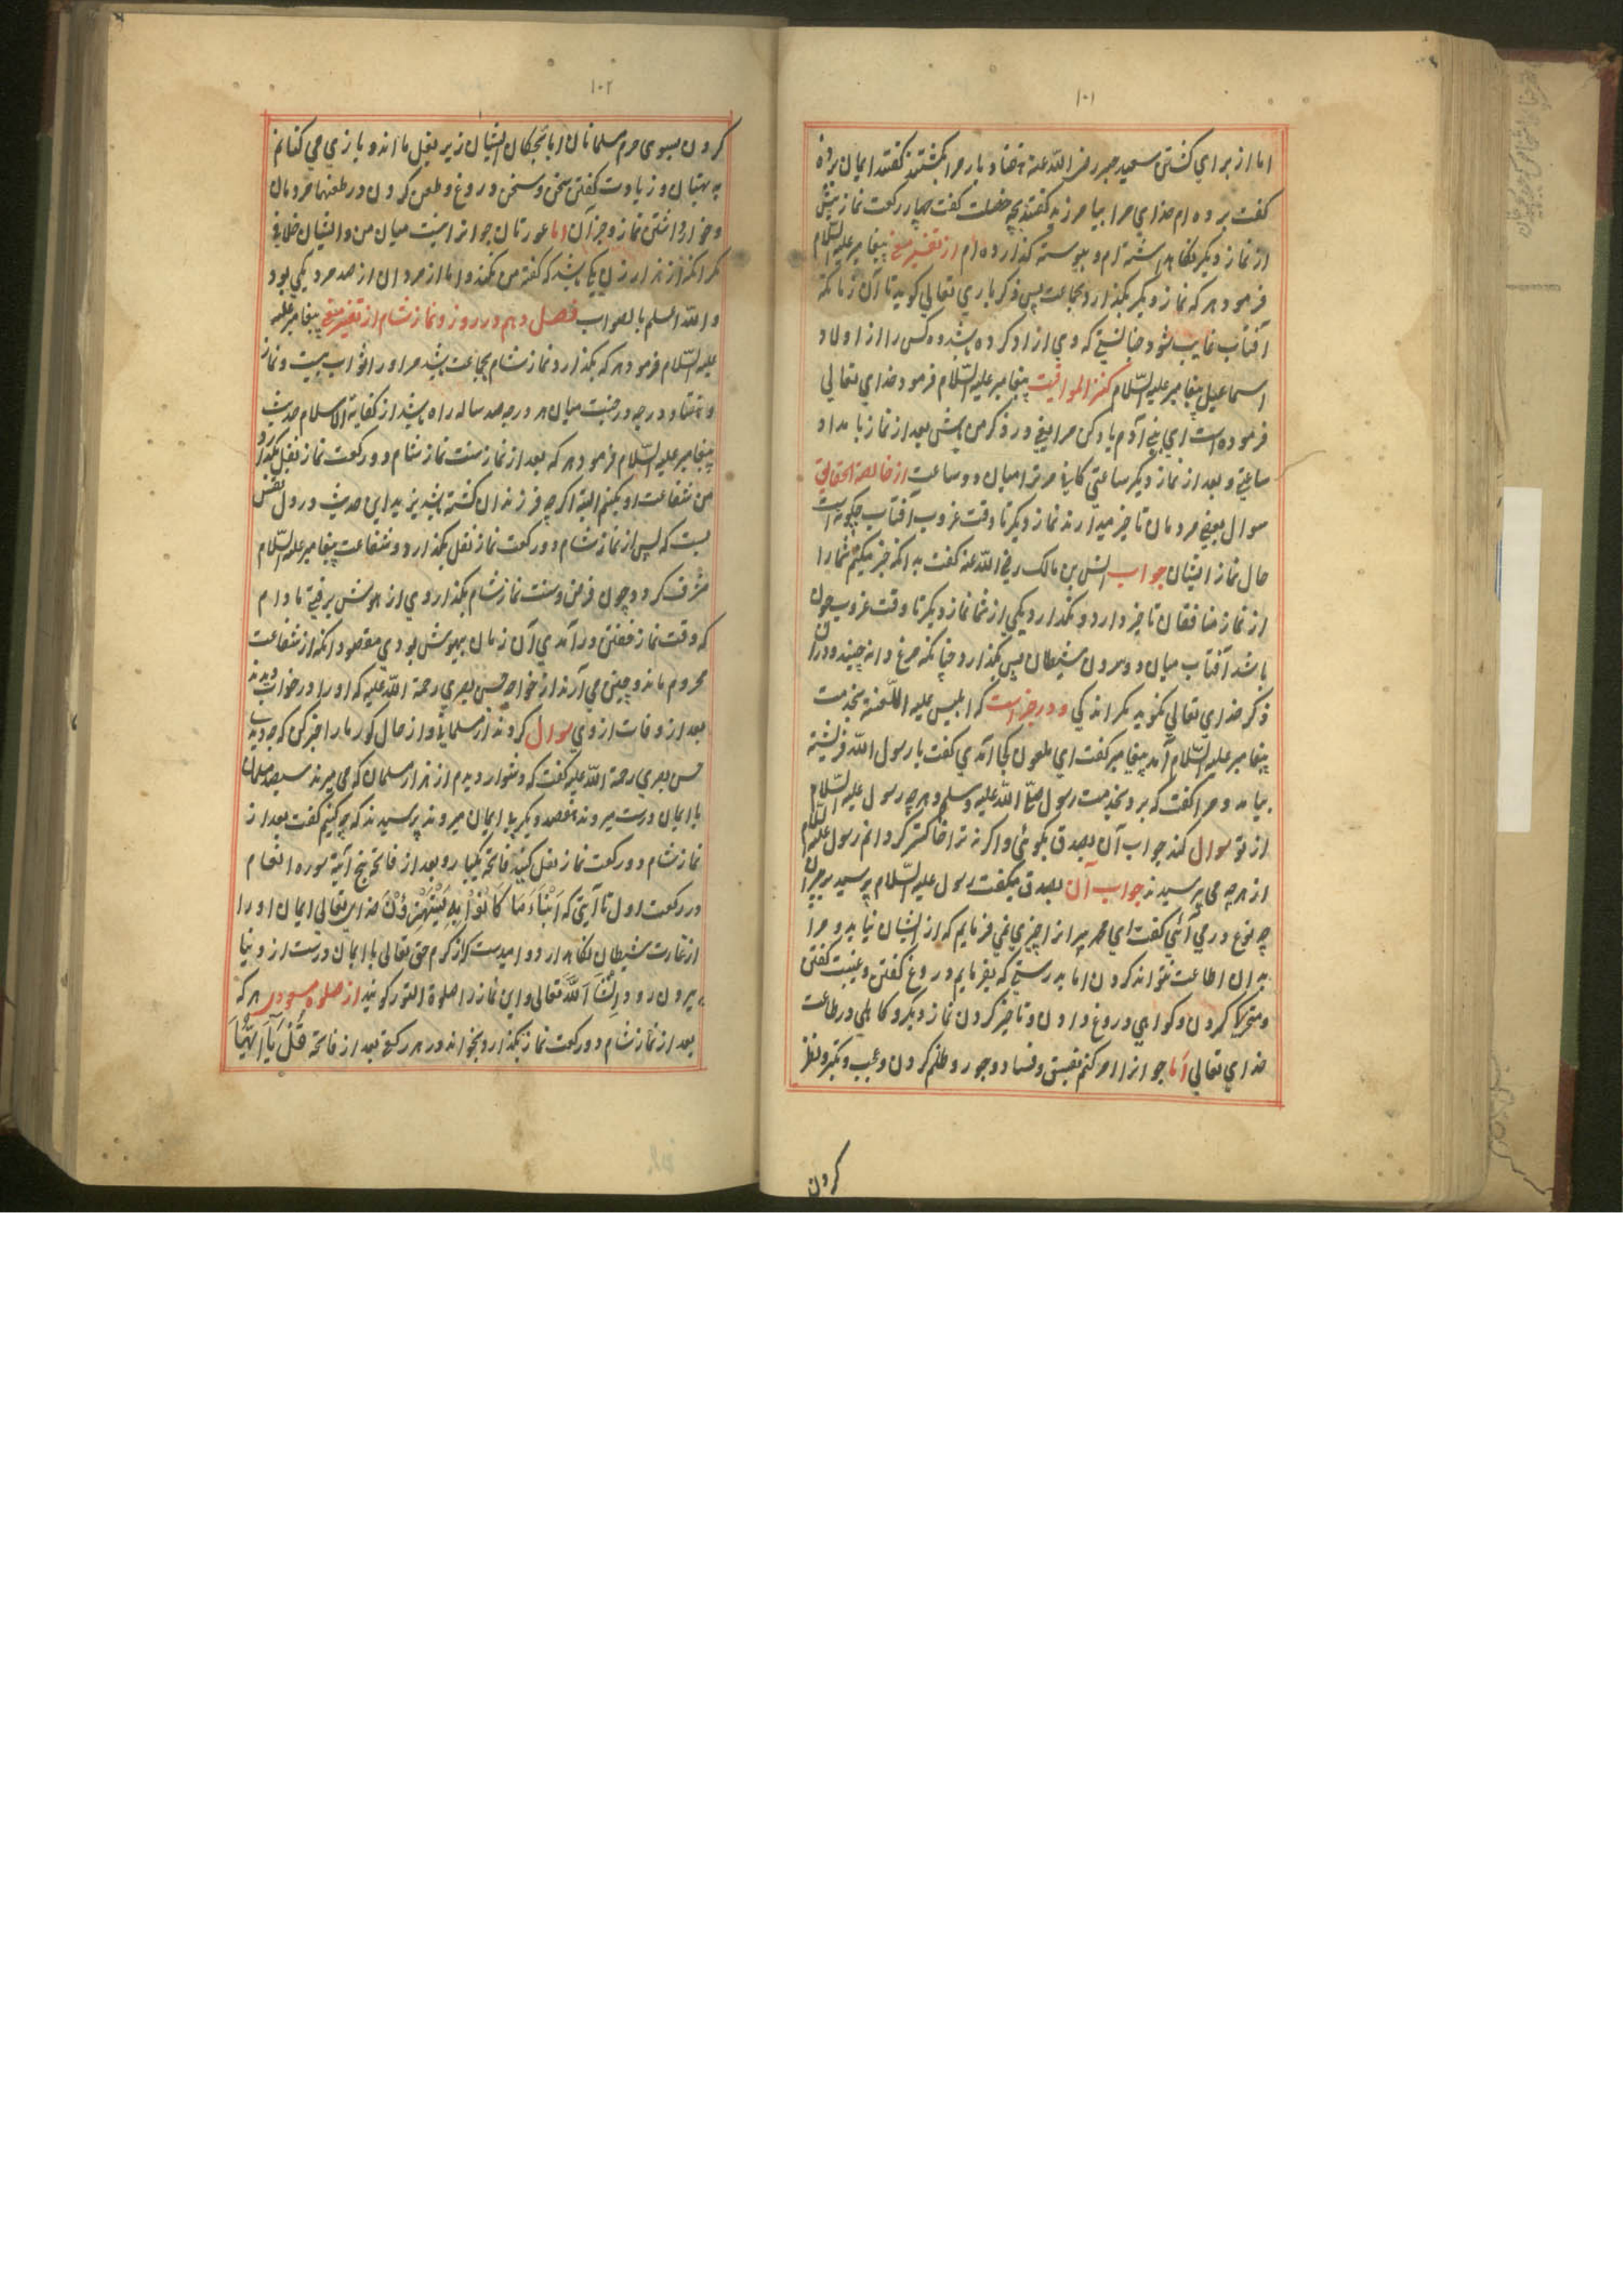 ۱۰۱
اما از برای کشتن سعید جبیر رضی الله عنه هفتاد بار مرا بکشتند گفتند ایمان برده
گفت برده ام خدای مرا بیامرزید گفتند بچه خصلت گفت چهار رکعت نماز پیش
از نماز دیگر نگاه داشته ام و پیوسته گذارده ام از تفسیر مغنی پیغامبر علیه السّلام
فرمود هر که نماز دیگر بگذارد بجماعت پس ذکر باری تعالی کوید تا آن زمانکه
آفتاب غایب شود چنانستی که وی ازاد کرده باشد ده کس را از اولاد
اسماعیل پیغامبر علیه السّلام کنز المواقیت پیغامبر علیه السّلام فرمود خدای تعالی
فرموده است ای بنی آدم یاد کن مرا یعنی در ذکر من باش بعد از نماز بامداد
ساعتی و بعد از نماز دیگر ساعتی کافی مر ترا میان دو ساعت از خالصة الحقایق
سوال بعضی مردمان تاخیر میدارند نماز دیگر تا وقت غروب آفتاب چکونه است
حال نماز ایشان جواب انس بن مالک رضی الله عنه گفت بدانکه خبر میکنم شما را
از نماز منافقان تاخیر دارد و نگذارد یکی از شما نماز دیگر تا وقت غروب چون
باشد آفتاب میان دو سرون شیطان پس بگذارد چنانکه مرغ دانه چیند و دران
ذکر خدای تعالی نکوید مکر اندکی و در خبر است که ابلیس علیه اللّعنة بخدمت
پیغامبر علیه السّلام آمد پیغامبر گفت ای ملعون کجا آمدی گفت یا رسول الله فرشتة
بیامد و مرا گفت که برو بخدمت رسول صلّی الله علیه وسلم و هرچه رسول علیه السّلام
از تو سوال کند جواب آن بصدق بکوئی و اکر نه ترا خاکستر کردانم رسول علیه السلام
از هر چه می پرسید نه جواب آن بصدق میکفت رسول علیه السّلام پرسید بر پیران
چه نوع در می آئی گفت ای محمد پیرانرا چیزی نمی فرمایم که از ایشان نیاید و مرا
بدان اطاعت نتوانند کردن اما بدرستی که بفرمایم دروغ گفتن و غیبت گفتن
و متحرک کردن و کواهی دروغ دادن و تاخیر کردن نماز دیکر و کاهلی در طاعت
خدای تعالی اما جوانانرا امر کنم بفسق و فساد و جور و ظلم کردن و عجب و تکبر و نظر
کردن
۱۰۲
کردن بسوی حرم مسلمانان اما بچکان ایشان زیر بغل ما اند و بازی می کنانم
به بهتان و زیادت گفتن سخن و سخن دروغ و طعن کردن و در طعنها مردمان
و خوار داشتن نماز و جز آن اما عورتان جوانرا نیست میان من و ایشان خلافی
مکر انکه از هزار زن یکی باشد که گفته من نکند و اما از مردان از صد مرد یکی بود
والله اعلم بالصواب فصل دهم در روز و نماز شام از تفسیر مغنی پیغامبر علیه
علیه السّلام فرمود هر که بگذارد نماز شام بجماعت باشد مر اورا ثواب بیست و نماز
و هفتاد درجه در جنت میان هر درجه صد ساله راه باشد از کفایة الاسلام حدیث
پیغامبر علیه السّلام فرمود هر که بعد از نماز سنت نماز شام دو رکعت نماز نفل بگذارد
من شفاعت او بکنم البته اگرچه فرزندان کشته باشد یزید این حدیث در دل نقش
بست که پس از نماز شام دو رکعت نماز نفل بگذارد و شفاعت پیغامبر علیه السّلام
مشرف کردد چون فرض و سنت نماز شام بگذاردی از هوش برفتی مادام
که وقت نماز خفتن درآمدی آن زمان بهوش بودی مقصود انکه از شفاعت
محروم ماند و چنین می آرند از خواجه حسن بصری رحمة الله علیه که او را در خواب دیدند
بعد از وفات از وی سوال کردند از مسلمانی و از حال کور ما را خبر کن که چه دیدی
حسن بصری رحمة الله علیه گفت که دشوار دیدم از هزار مسلمان که می میرند سیصد مسلمان
با ایمان درست میروند هفصد دیکر بی ایمان میروند پرسیدند که چه کنیم گفت بعد از
نماز شام دو رکعت نماز نفل کنید فاتحه یکبار و بعد از فاتحه پنج آیة سوره انعام
در رکعت اول تا آیتی که اَنْبٰاۤءُ مَا کَانُوْا بِهٖ یَسْتَهْزِؤُنَ خدای تعالی ایمان او را
از غارت شیطان نگاه دارد و امید ست که از کرم حق تعالی با ایمان درست از دنیا
بیرون رود اِنْشَآ اَللّٰه تعالی و این نماز را صلوة النور کویند از صلوة مسعودی هر که
بعد از نماز شام دو رکعت نماز بگذارد و بخواند در هر رکعتی بعد از فاتحه قُلْ یٰۤا اَیُّهَا